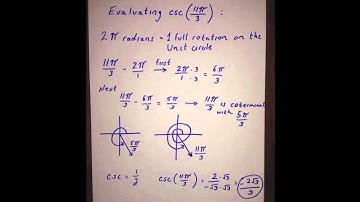 Evaluating csc(11π/3) :
2π radians = 1 full rotation on the
Unit circle
11π/3 - 2π/1 first → 2π·3/1·3 = 6π/3
Next
11π/3 - 6π/3 = 5π/3 → 11π/3 is coterminal
with 5π/3
5π/3
11π/3
csc = 1/y
csc(11π/3) = 2·√3/-√3·√3 = -2√3/3